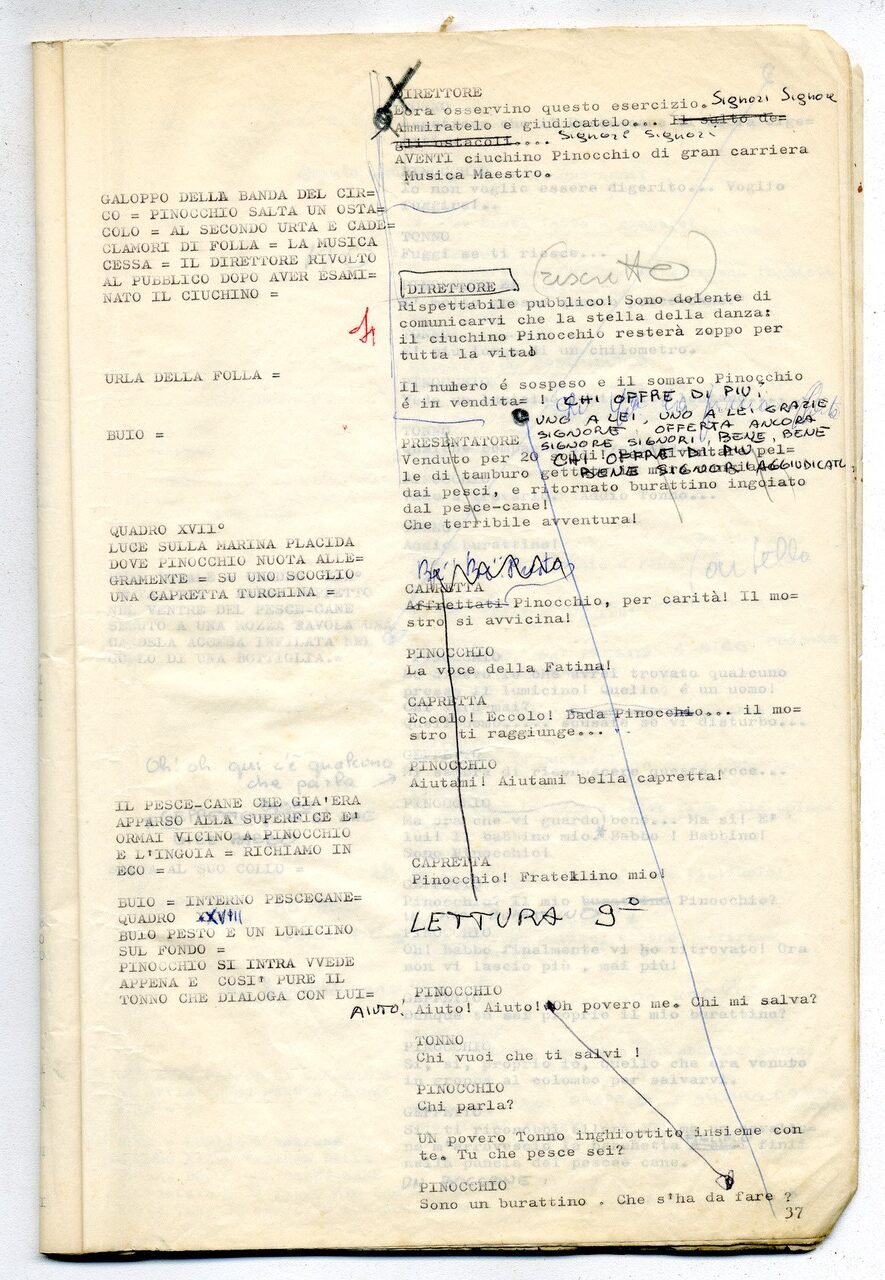 DIRETTORE
Eora osservino questo esercizio. Signori Signore
Ammiratelo e giudicatelo... Il salto de=
gli ostacoli.... Signore Signori
AVENTI ciuchino Pinocchio di gran carriera
Musica Maestro.
GALOPPO DELLA BANDA DEL CIR=
CO = PINOCCHIO SALTA UN OSTA=
COLO = AL SECONDO URTA E CADE=
CLAMORI DI FOLLA = LA MUSICA
CESSA = IL DIRETTORE RIVOLTO
AL PUBBLICO DOPO AVER ESAMI=
NATO IL CIUCHINO =
(riscritto)
DIRETTORE
Rispettabile pubblico! Sono dolente di
comunicarvi che la stella della danza:
il ciuchino Pinocchio resterà zoppo per
tutta la vita
URLA DELLA FOLLA =
Il numero é sospeso e il somaro Pinocchio
é in vendita= ! CHI OFFRE DI PIU,
UNO A LEI, UNO A LEI GRAZIE
SIGNORE, OFFERTA ANCORA
SIGNORE SIGNORI BENE, BENE
CHI OFFRE DI PIU
BENE SIGNORI AGGIUDICATO
BUIO =
PRESENTATORE
Venduto per 20 soldi! pel=
le di tamburo
dai pesci, e ritornato burattino ingoiato
dal pesce-cane!
Che terribile avventura!
QUADRO XVII°
LUCE SULLA MARINA PLACIDA
DOVE PINOCCHIO NUOTA ALLE=
GRAMENTE = SU UNO SCOGLIO
UNA CAPRETTA TURCHINA =
CAPRETTA
Affrettati Pinocchio, per carità! Il mo=
stro si avvicina!
PINOCCHIO
La voce della Fatina!
CAPRETTA
Eccolo! Eccolo! Bada Pinocchio... il mo=
stro ti raggiunge...
PINOCCHIO
Aiutami! Aiutami bella capretta!
IL PESCE-CANE CHE GIA'ERA
APPARSO ALLA SUPERFICE E'
ORMAI VICINO A PINOCCHIO
E L'INGOIA = RICHIAMO IN
ECO =
CAPRETTA
Pinocchio! Fratellino mio!
BUIO = INTERNO PESCECANE=
QUADRO XXVIII
BUIO PESTO E UN LUMICINO
SUL FONDO =
PINOCCHIO SI INTRA VVEDE
APPENA E COSI' PURE IL
TONNO CHE DIALOGA CON LUI=
LETTURA 9°
PINOCCHIO
AIUTO! Aiuto! Aiuto! Oh povero me. Chi mi salva?
TONNO
Chi vuoi che ti salvi !
PINOCCHIO
Chi parla?
UN povero Tonno inghiottito insieme con
te. Tu che pesce sei?
PINOCCHIO
Sono un burattino . Che s'ha da fare ?
37